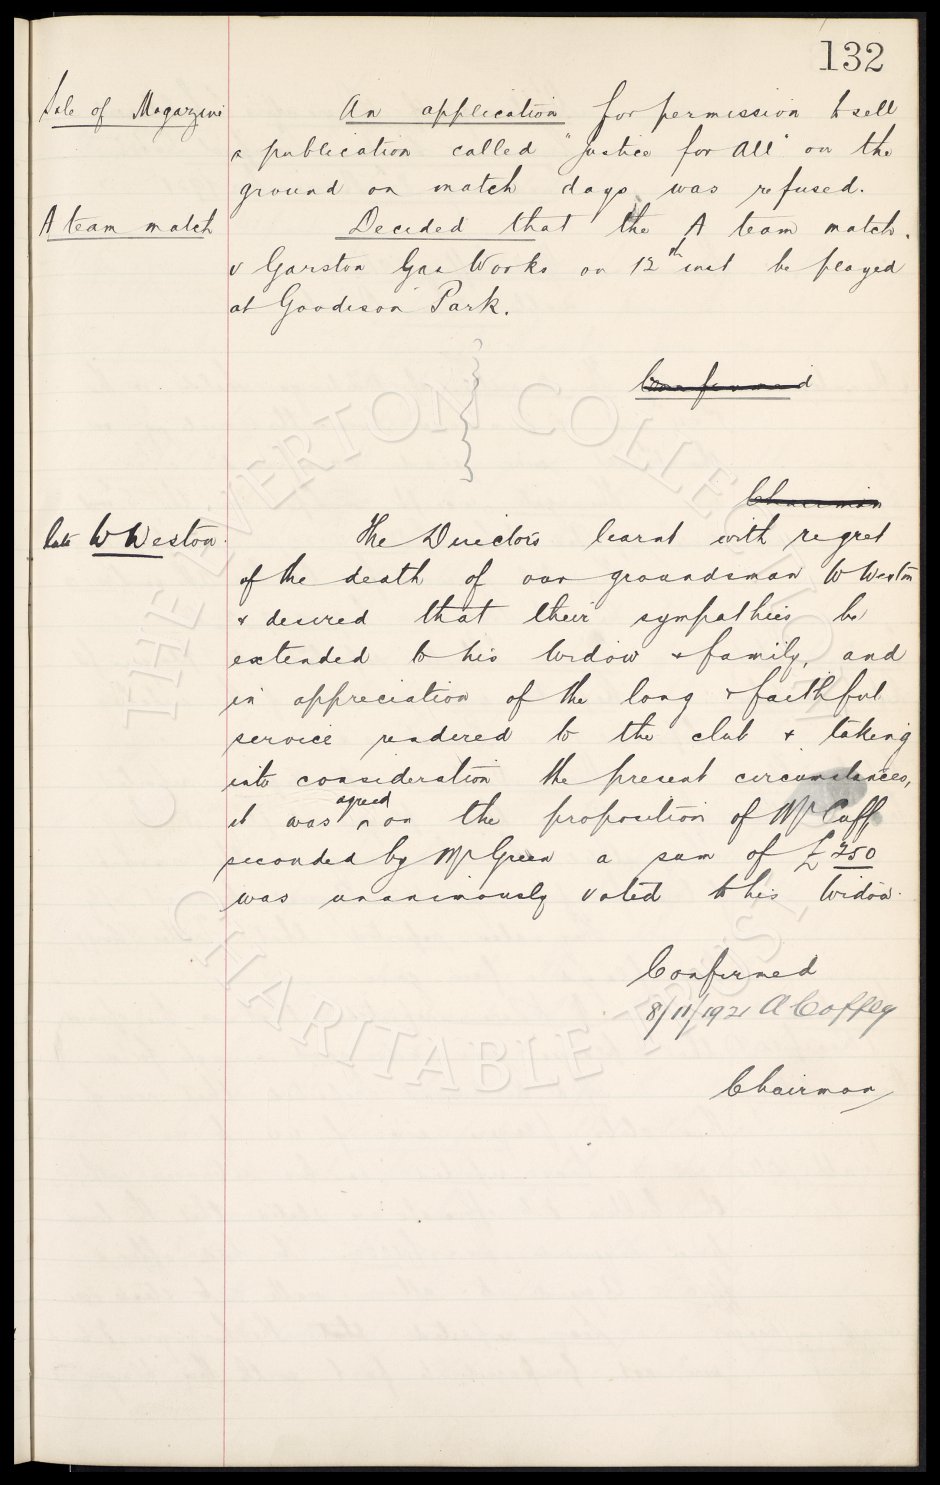 132
Sale of Magazine
An application for permission to sell
a publication called "Justice for All" on the
ground on match days was refused.
A team match
Decided that the A team match.
v Garston Gas Works on 12th inst be played
at Goodison Park.
Confirmed
Chairman
late W Weston.
The Directors learnt with regret
of the death of our groundsman W Weston
& desired that their sympathies be
extended to his Widow & family, and
in appreciation of the long & faithful
service rendered to the club & taking
into consideration the present circumstances,
it was agreed on the proposition of Mr Cuff,
seconded by Mr Green a sum of £250
was unanimously voted to his Widow.
Confirmed
8/11/1921 A Coffey
Chairman
© THE EVERTON COLLECTION
CHARITABLE TRUST